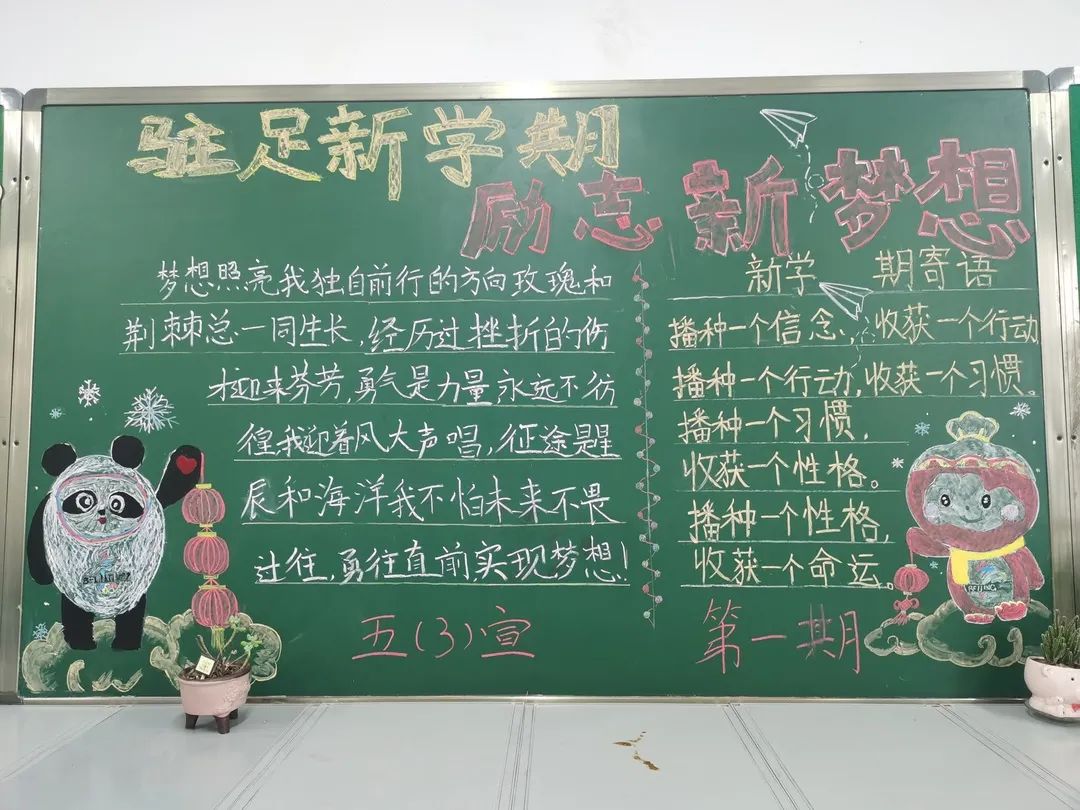 驻足新学期
励志新梦想
梦想照亮我独自前行的方向玫瑰和
荆棘总一同生长,经历过挫折的伤
才迎来芬芳,勇气是力量永远不彷
徨,我迎着风大声唱,征途是星
辰和海洋我不怕未来不畏
过往,勇往直前实现梦想!
新学 期寄语
播种一个信念,收获一个行动
播种一个行动,收获一个习惯。
播种一个习惯,
收获一个性格。
播种一个性格,
收获一个命运。
五(3)宣
第一期
BEIJING